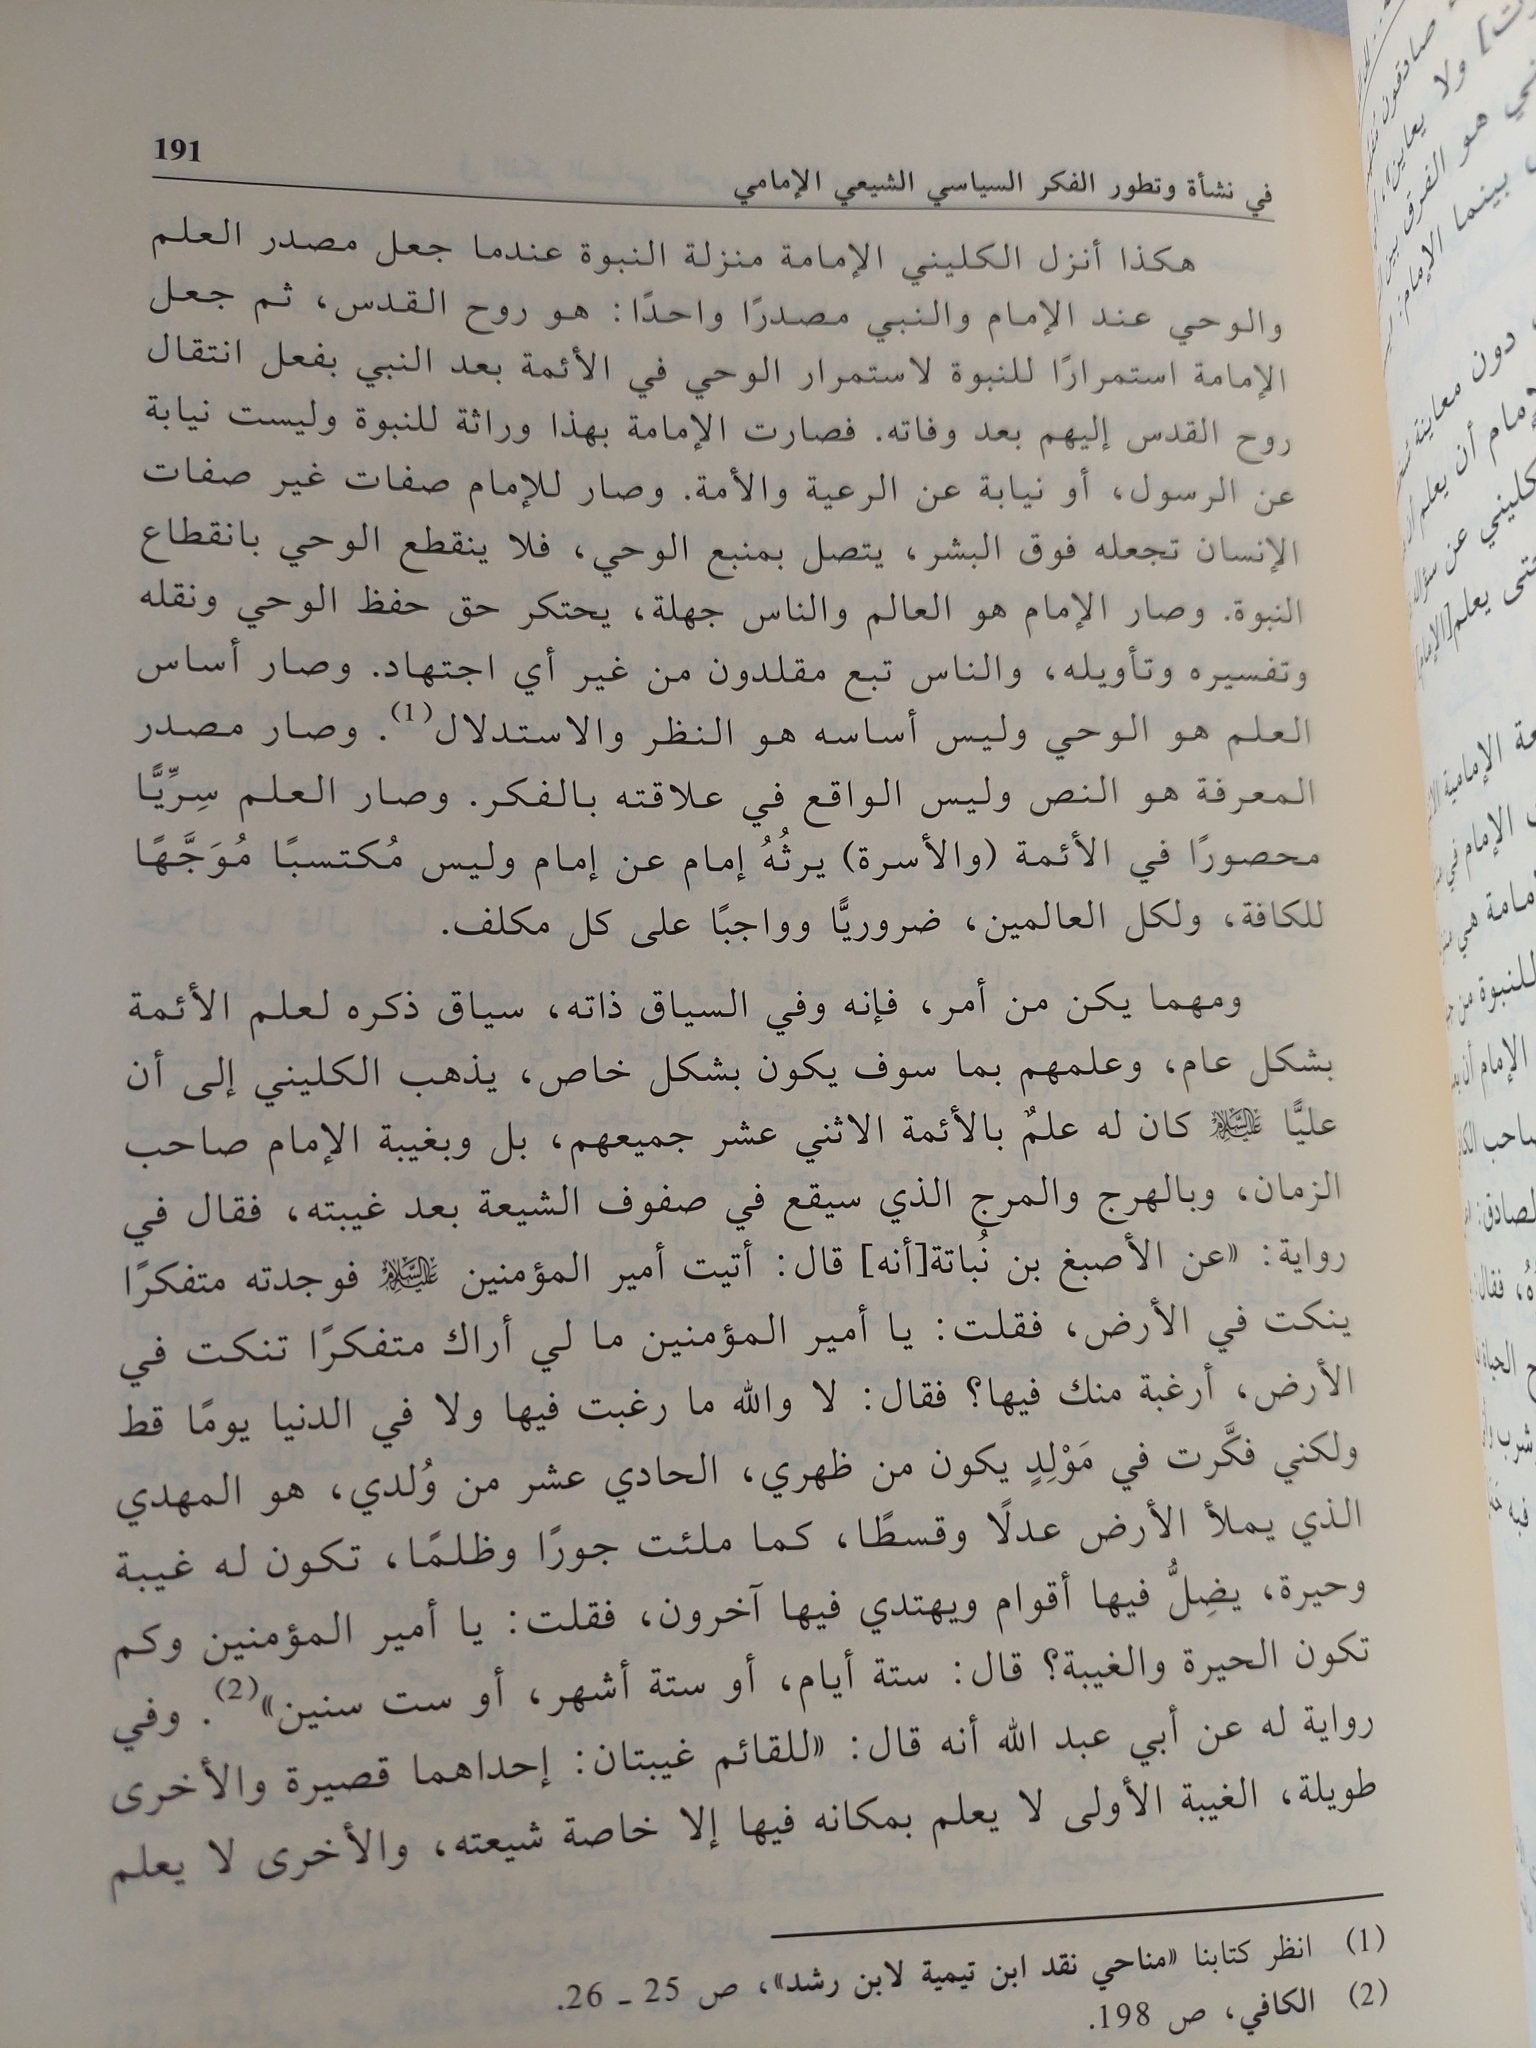 191
في نشأة وتطور الفكر السياسي الشيعي الإمامي
هكذا أنزل الكليني الإمامة منزلة النبوة عندما جعل مصدر العلم
والوحي عند الإمام والنبي مصدرًا واحدًا: هو روح القدس، ثم جعل
الإمامة استمرارًا للنبوة لاستمرار الوحي في الأئمة بعد النبي بفعل انتقال
روح القدس إليهم بعد وفاته. فصارت الإمامة بهذا وراثة للنبوة وليست نيابة
عن الرسول، أو نيابة عن الرعية والأمة. وصار للإمام صفات غير صفات
الإنسان تجعله فوق البشر، يتصل بمنبع الوحي، فلا ينقطع الوحي بانقطاع
النبوة. وصار الإمام هو العالم والناس جهلة، يحتكر حق حفظ الوحي ونقله
وتفسيره وتأويله، والناس تبع مقلدون من غير أي اجتهاد. وصار أساس
العلم هو الوحي وليس أساسه هو النظر والاستدلال(1). وصار مصدر
المعرفة هو النص وليس الواقع في علاقته بالفكر. وصار العلم سِرِّيًّا
محصورًا في الأئمة (والأسرة) يرثُهُ إمام عن إمام وليس مُكتسبًا مُوَجَّهًا
للكافة، ولكل العالمين، ضروريًّا وواجبًا على كل مكلف.
ومهما يكن من أمر، فإنه وفي السياق ذاته، سياق ذكره لعلم الأئمة
بشكل عام، وعلمهم بما سوف يكون بشكل خاص، يذهب الكليني إلى أن
عليًّا عليه السلام كان له علمٌ بالأئمة الاثني عشر جميعهم، بل وبغيبة الإمام صاحب
الزمان، وبالهرج والمرج الذي سيقع في صفوف الشيعة بعد غيبته، فقال في
رواية: «عن الأصبغ بن نُباتة[أنه] قال: أتيت أمير المؤمنين عليه السلام فوجدته متفكرًا
ينكت في الأرض، فقلت: يا أمير المؤمنين ما لي أراك متفكرًا تنكت في
الأرض، أرغبة منك فيها؟ فقال: لا والله ما رغبت فيها ولا في الدنيا يومًا قط
ولكني فكَّرت في مَوْلِدٍ يكون من ظهري، الحادي عشر من وُلدي، هو المهدي
الذي يملأ الأرض عدلًا وقسطًا، كما ملئت جورًا وظلمًا، تكون له غيبة
وحيرة، يضِلُّ فيها أقوام ويهتدي فيها آخرون، فقلت: يا أمير المؤمنين وكم
تكون الحيرة والغيبة؟ قال: ستة أيام، أو ستة أشهر، أو ست سنين»(2). وفي
رواية له عن أبي عبد الله أنه قال: «للقائم غيبتان: إحداهما قصيرة والأخرى
طويلة، الغيبة الأولى لا يعلم بمكانه فيها إلا خاصة شيعته، والأخرى لا يعلم
(1) انظر كتابنا «مناحي نقد ابن تيمية لابن رشد»، ص 25 ـ 26.
(2) الكافي، ص 198.